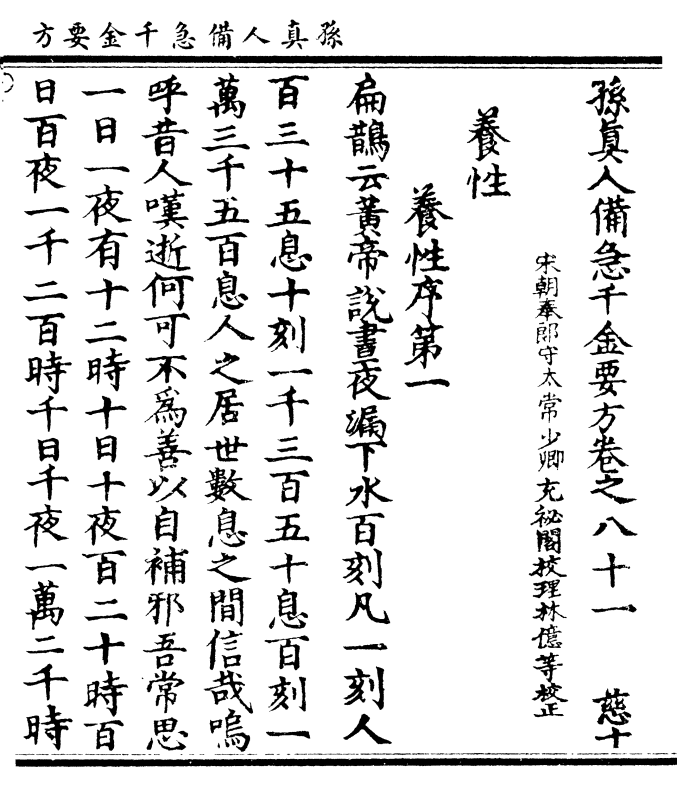 孫真人備急千金要方
孫眞人備急千金要方卷之八十一 慈十
宋朝奉郎守太常少卿充祕閣校理林億等校正
養性
養性序第一
扁鵲云黃帝說晝夜漏下水百刻凡一刻人
百三十五息十刻一千三百五十息百刻一
萬三千五百息人之居世數息之間信哉嗚
呼昔人嘆逝何可不爲善以自補邪吾常思
一日一夜有十二時十日十夜百二十時百
日百夜一千二百時千日千夜一萬二千時